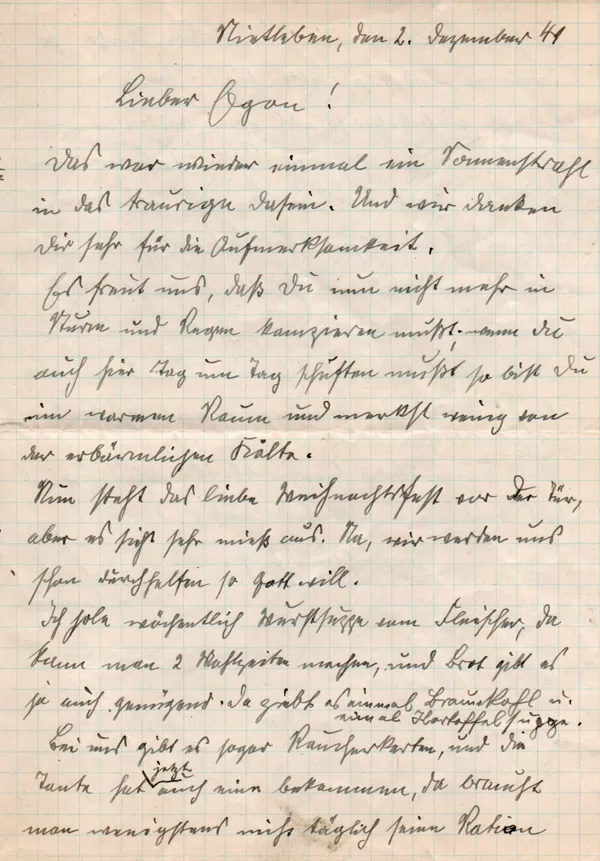 Nietleben, den 2. Dezember 41
Lieber Egon!
Das war wieder einmal ein Sonnenstrahl
in das traurige Dasein. Und wir danken
Dir sehr für die Aufmerksamkeit.
Es freut uns, daß Du nun nicht mehr in
Sturm und Regen kampieren mußt, wenn du
auch hier Tag um Tag schuften mußt so bist Du
im warmen Raum und merkst wenig von
der erbärmlichen Kälte.
Nun steht das liebe Weihnachtsfest vor der Tür,
aber es sieht sehr mieß aus. Na, wir werden uns
schon durchhelfen so Gott will.
Ich hole wöchentlich Wurstsuppe vom Fleischer, da
kann man 2 Mahlzeiten machen, und Brot gibt es
ja auch genügend. Da giebt es einmal Braunkohl u.
einmal Kartoffelsuppe.
Bei uns gibt es sogar Raucherkarten, und die
Tante hat jetzt auch eine bekommen, da braucht
man wenigstens nicht täglich seine Ration